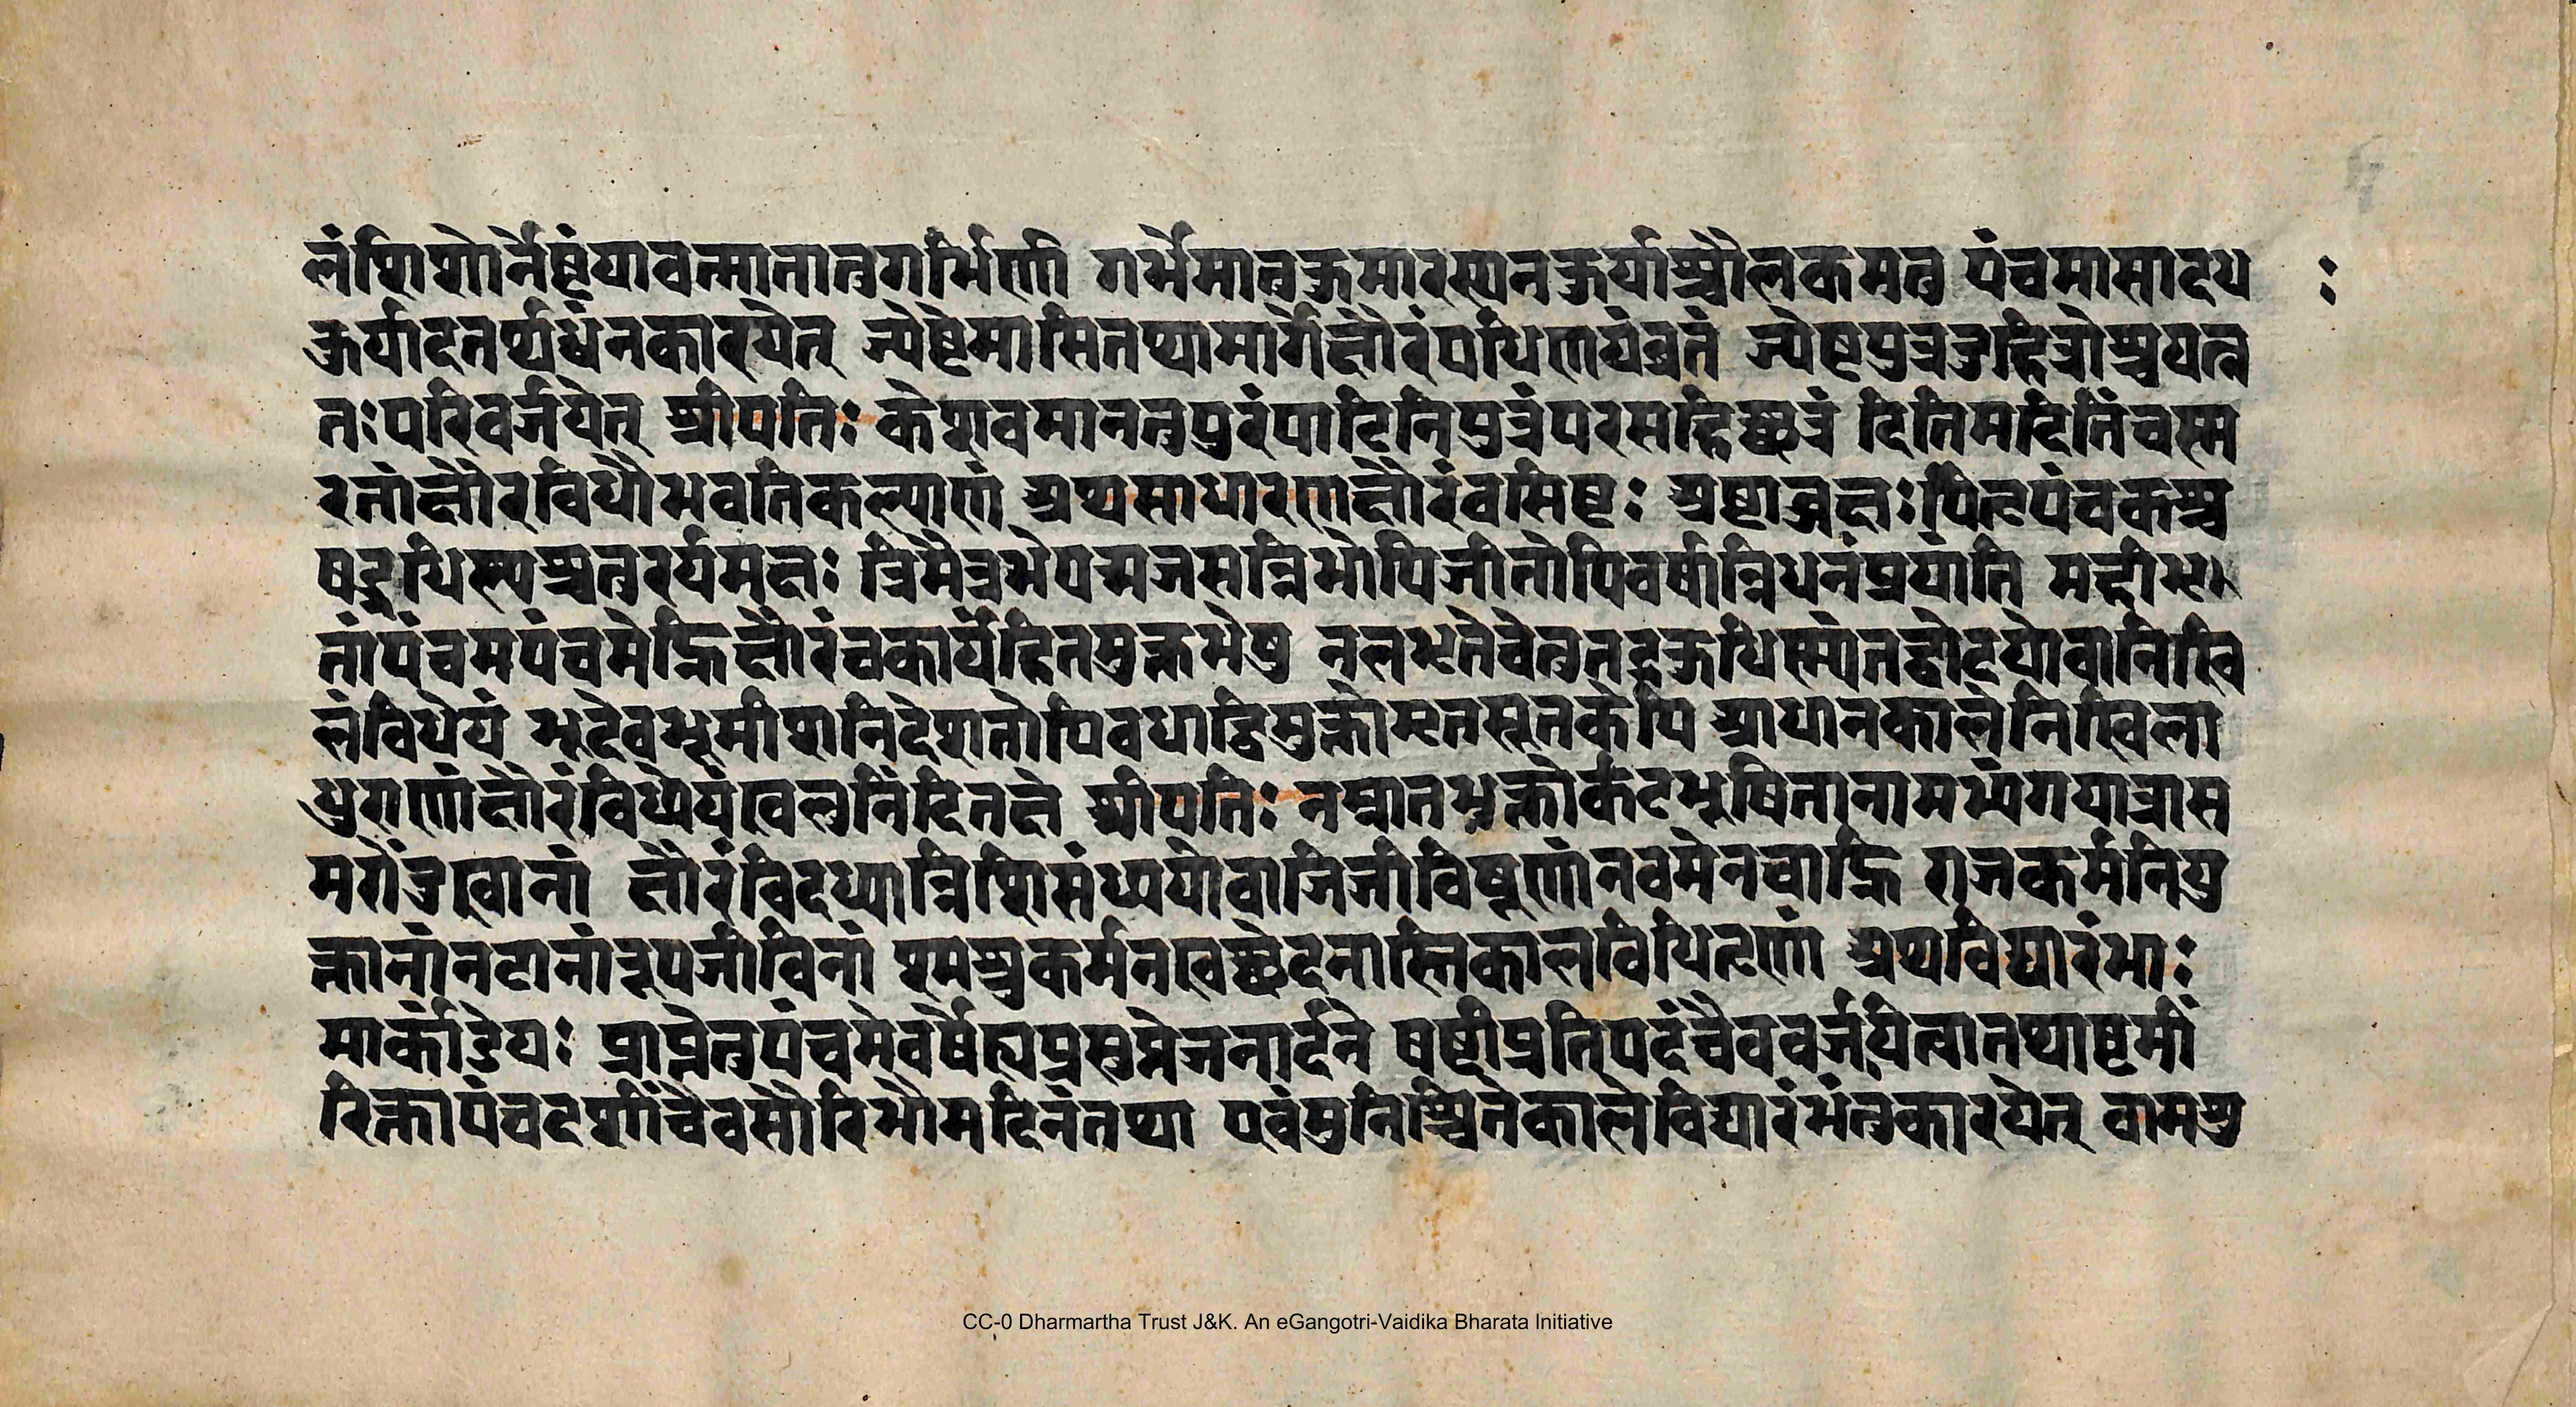 लंशिशोर्नेष्टंयावन्मातातुगर्भिणी गर्भेमातुकुमारस्यनकुर्याच्चौलकमतु पंचमासादथ :
कुर्यादतऊर्ध्वंनकारयेत् ज्येष्ठेमासितथामार्गेक्षौरंपरिणयंव्रतं ज्येष्ठपुत्रदुहित्रोश्चयत्न
तःपरिवर्जयेत् श्रीपतिः केशवमानर्तपुरंपाटलिपुत्रंपुरमहिच्छत्रं दितिमदितिंचस्म
रतांक्षौरविधौभवतिकल्याणं अथसाधारणक्षौरंवसिष्ठः अष्टाब्जक्षःपितृपंचकश्च
षड्वह्निधिष्ण्यश्चतुरर्यमक्षः त्रिमैत्रभेपद्मजसन्निभोपिजीतोपिवर्षान्निधनंप्रयाति महीभृ
तांपंचमपंचमेह्निक्षौरंचकार्यंहितमुक्तभेषु नलभ्यतेचेत्तुतदुक्तधिष्ण्यंतद्वोदयेवानिखि
लंविधेयं भूदेवभूमीशनिदेशतोपिवधाद्विमुक्तौमृतसूतकेपि आधानकालेनिखिला
धुराणांक्षौरंविधेयंखलुनिंदितक्षे श्रीपतिः नस्नातभुक्तोत्कटभूषितानामभ्यंगयात्रास
मरोत्सुकानां क्षौरंविदध्यान्निशिसंध्ययोर्वाजिजीविषूणांनवमेनचाह्नि राजकर्मनियु
क्तानांनटानांरूपजीविनां श्मश्रुकर्मनखच्छेदनास्तिकालविधिर्नृणां अथविद्यारंभः
मार्कंडेयः प्राप्तेतुपंचमेवर्षेह्यप्रसुप्तेजनार्दने षष्ठीप्रतिपदंचैववर्जयित्वातथाष्टमीं
रिक्तापंचदशींचैवसौरिभौमदिनंतथा एवंसुनिश्चितेकालेविद्यारंभंतुकारयेत् वामशु
CC-0 Dharmartha Trust J&K. An eGangotri-Vaidika Bharata Initiative